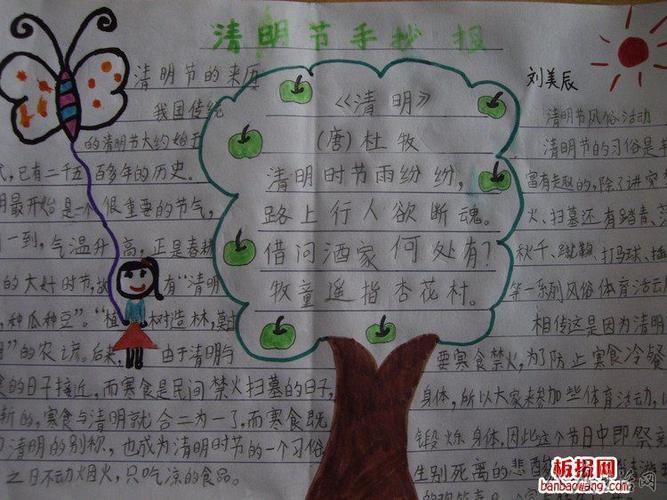 清明节手抄报
清明节的来历
我国传统
的清明节大约始于
代,已有二千五百多年的历史。
明最开始是一个很重要的节气,
一到,气温升高,正是春耕
的大好时节,故有“清明
,种瓜种豆”。“植树造林,莫过
”的农谚。后来,由于清明与
的日子接近,而寒食是民间禁火扫墓的日子,
新的,寒食与清明就合二为一了,而寒食既
清明的别称,也成为清明时节的一个习俗
之日不动烟火,只吃凉的食品。
《清明》
(唐)杜牧
清明时节雨纷纷,
路上行人欲断魂。
借问酒家何处有?
牧童遥指杏花村。
刘美辰
清明节风俗活动
清明节的习俗是丰
富有趣的,除了讲究禁
火、扫墓还有踏青、
秋千、蹴鞠、打马球、插
等一系列风俗体育活动
相传这是因为清明
要寒食禁火,为了防止寒食冷餐
身体,所以大家参加些体育活动,以
锻炼身体,因此这个节日中即祭
生别死离的悲酸
板报网
banbaowang.com